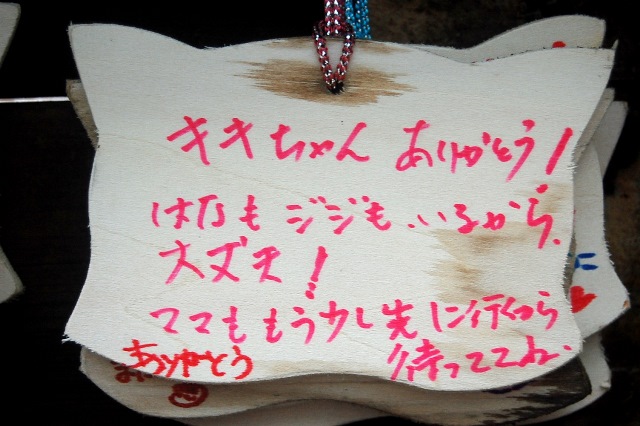 キキちゃん ありがとう!
はなも ジジも、いるから、
大丈夫!
ママも もう少し先に行くから
待っててね。
ありがとう